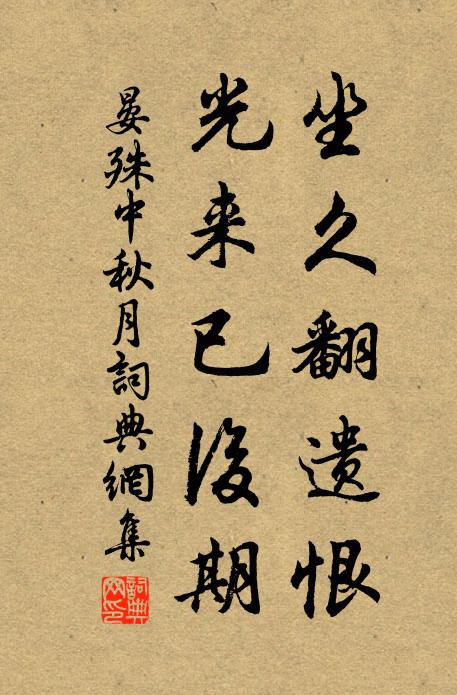 坐久翻遺恨
光来已後期
晏殊中秋月詞典網集
詞典網印